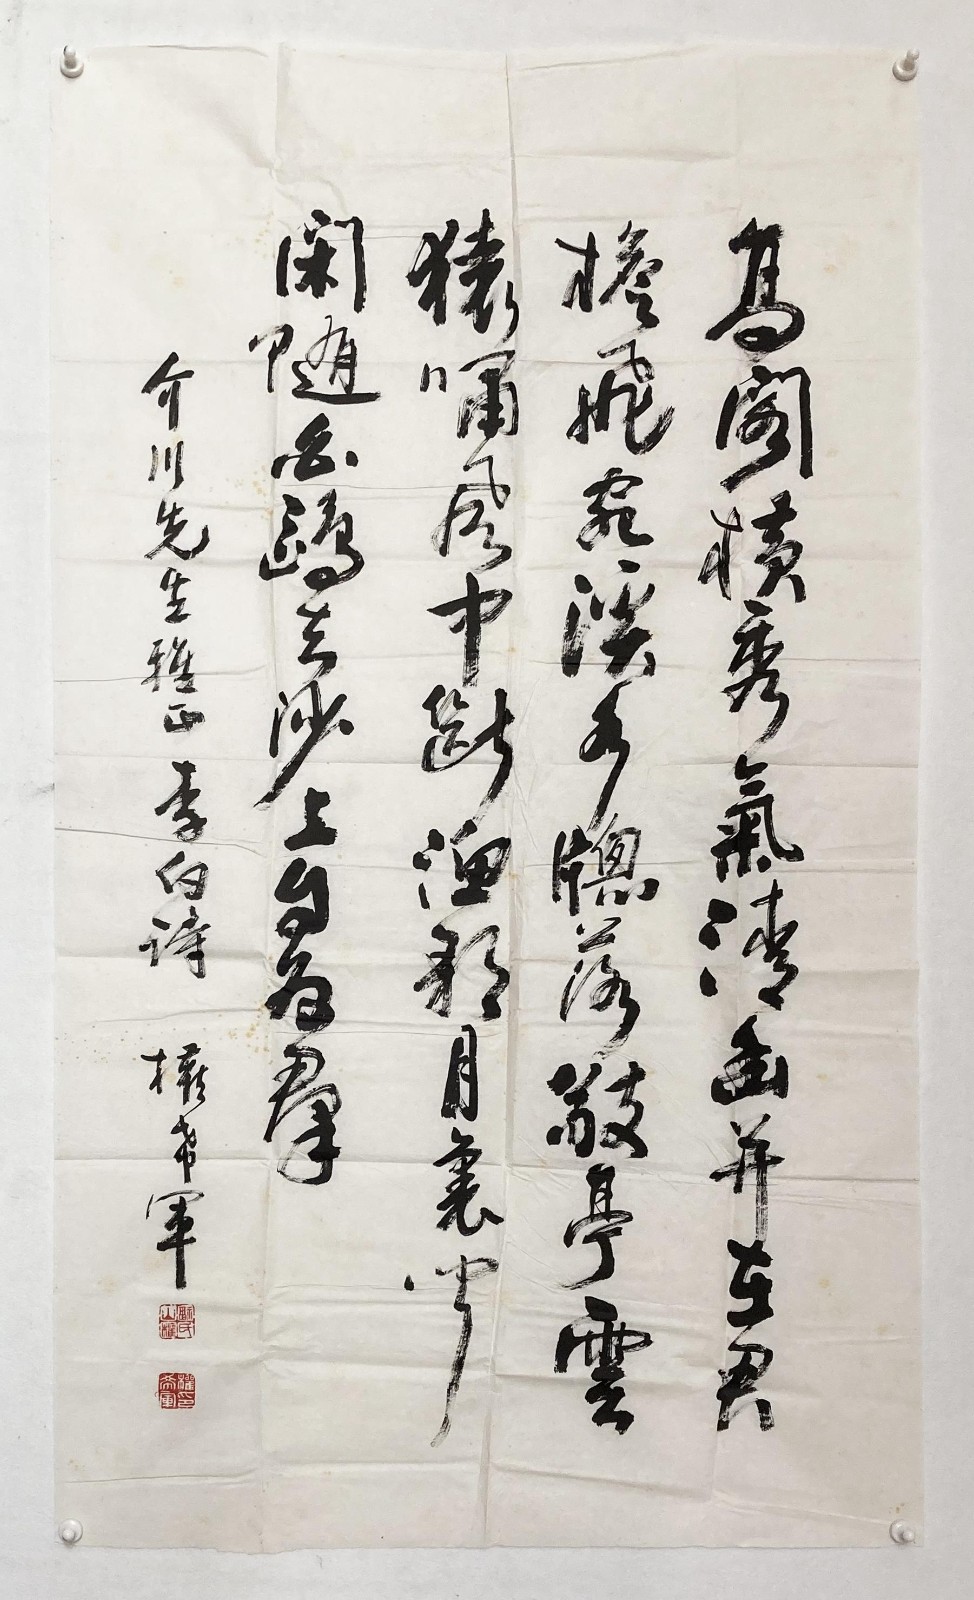 高閣橫秀氣清幽并在君
檐飛宛溪水牕落敬亭雲
猿嘯風中斷漁歌月裏聞
閑隨白鷗去沙上自為羣
介川先生雅正 李白詩 權希軍
權印希軍